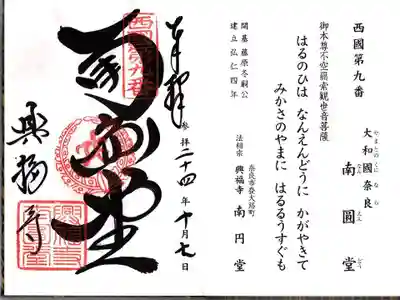 西國第九番
やまとのくになら
大和國奈良
なんえんどう
南圓堂
御本尊不空羂索観世音菩薩
はるのひは なんえんどうに かがやきて
みかさのやまに はるるうすぐも
開基 藤原冬嗣公
建立 弘仁四年
奈良市登大路町
法相宗 興福寺 南円堂
奉拝
参拝 二十四年 十月七日
西国第九番
南円堂
興福寺